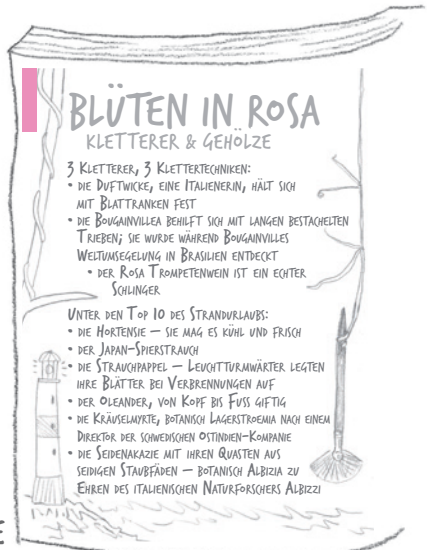 BLÜTEN IN ROSA
KLETTERER & GEHÖLZE
3 KLETTERER, 3 KLETTERTECHNIKEN:
• DIE DUFTWICKE, EINE ITALIENERIN, HÄLT SICH
MIT BLATTRANKEN FEST
• DIE BOUGAINVILLEA BEHILFT SICH MIT LANGEN BESTACHELTEN
TRIEBEN; SIE WURDE WÄHREND BOUGAINVILLES
WELTUMSEGELUNG IN BRASILIEN ENTDECKT
• DER ROSA TROMPETENWEIN IST EIN ECHTER
SCHLINGER
UNTER DEN TOP 10 DES STRANDURLAUBS:
• DIE HORTENSIE – SIE MAG ES KÜHL UND FRISCH
• DER JAPAN-SPIERSTRAUCH
• DIE STRAUCHPAPPEL – LEUCHTTURMWÄRTER LEGTEN
IHRE BLÄTTER BEI VERBRENNUNGEN AUF
• DER OLEANDER, VON KOPF BIS FUSS GIFTIG
• DIE KRÄUSELMYRTE, BOTANISCH LAGERSTROEMIA NACH EINEM
DIREKTOR DER SCHWEDISCHEN OSTINDIEN-KOMPANIE
• DIE SEIDENAKAZIE MIT IHREN QUASTEN AUS
SEIDIGEN STAUBFÄDEN – BOTANISCH ALBIZIA ZU
EHREN DES ITALIENISCHEN NATURFORSCHERS ALBIZZI